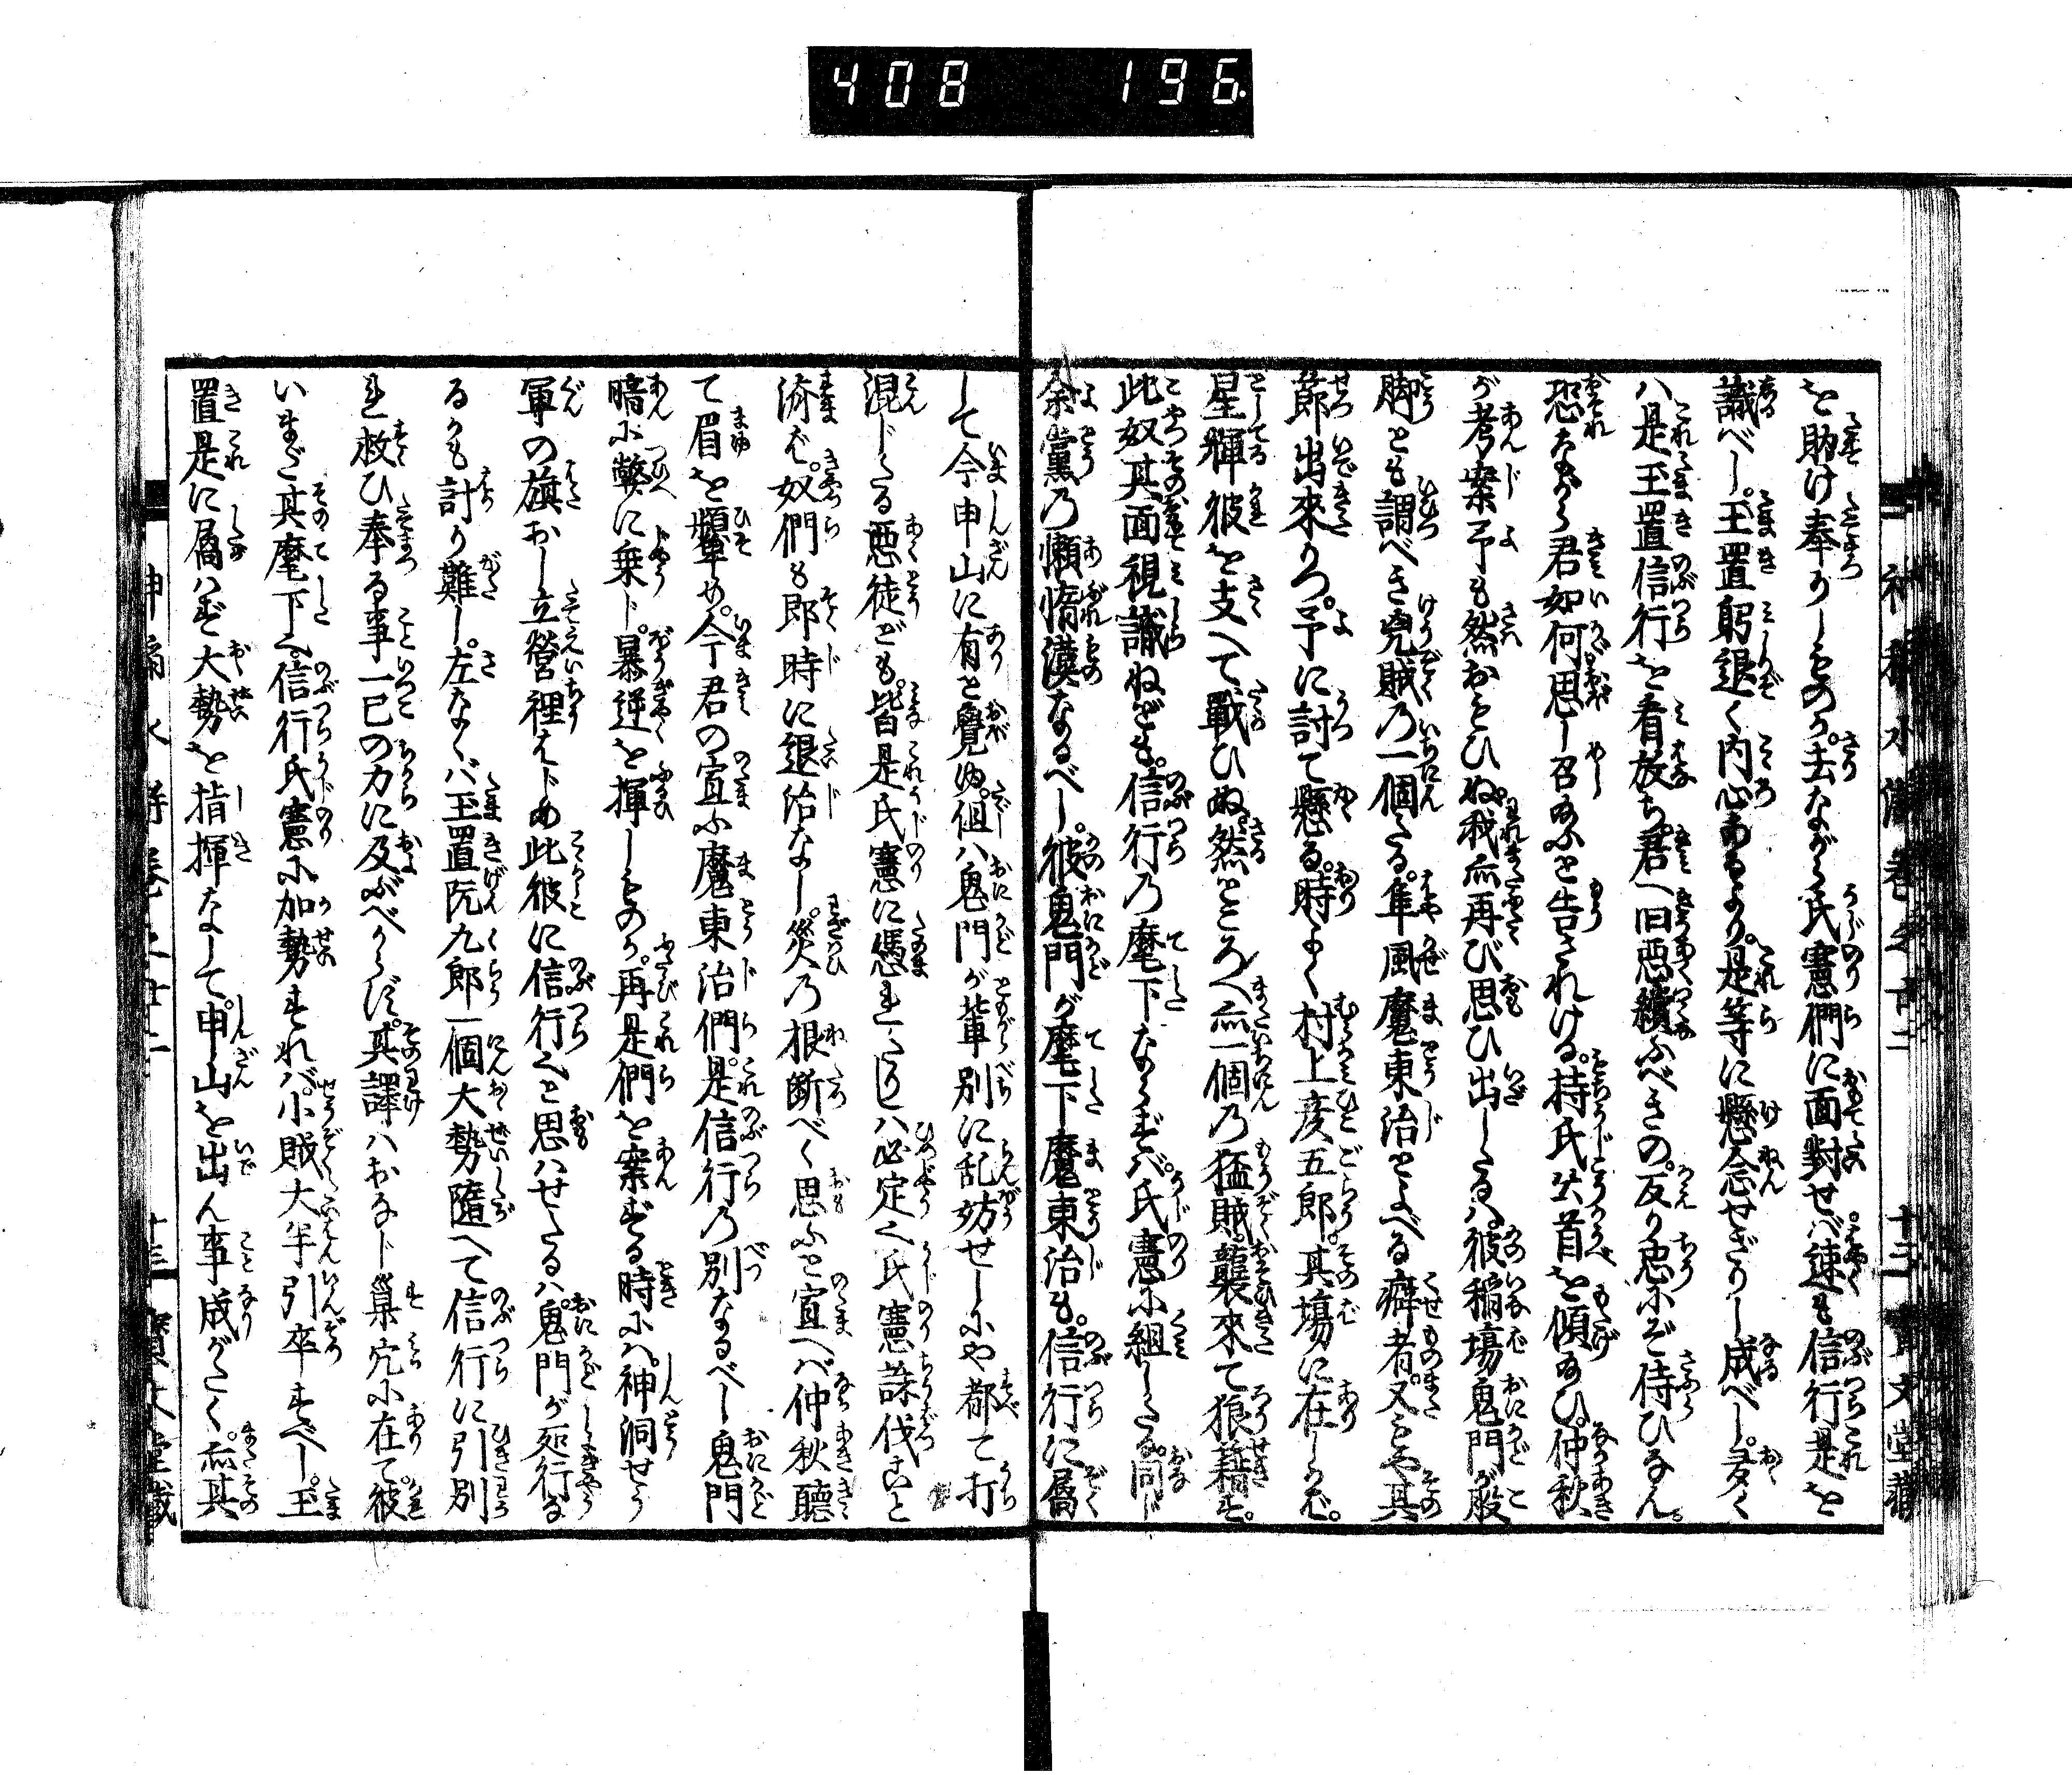 408 196
を助け奉りしものか。去ながら氏憲們に面對せバ速も信行是を
識べし。玉置躬退く内心あるより。是等に懸念せざりし成べし。多く
ハ是玉置信行を看放ち君へ旧悪續ふべきの。反り忠にぞ侍ひなん。
恐ながら君如何思し召給ふと告されける。持氏公首を傾給ひ。仲秋
が考案予も然おもひぬ。我亦再び思ひ出したるハ。彼稲場鬼門が股
脚とも謂べき兇賊の一個たる。隼風魔東治とよべる癖者。又もや其
節出來りつ。予に討て懸る。時よく村上彦五郎。其塲に在しかバ。
星輝彼を支へて戰ひぬ。然ところへ亦一個の猛賊。襲來て狼籍す。
此奴其面視識ねども。信行の麾下ならずバ。氏憲に組したる。同じ
余黨の懶惰漢なるべし。彼鬼門が麾下魔東治も。信行に屬
して今申山に有と覺ゆ。但ハ鬼門が輩別に乱妨せしにや都て打
混じたる悪徒ども。皆是氏憲に憑れたりしハ必定く氏憲誅伐なと
済バ。奴們も即時に退治なし。災の根断べく思ふと宣へバ仲秋聽
て眉を顰め。今君の宣ふ魔東治們。是信行の別なるべし鬼門
暗に弊に乗じ。暴逆を揮しものか。再是們を案ずる時にハ。神洞せう
軍の旗おし立營裡はじめ此彼に信行と思ハせたるハ。鬼門が所行な
るかも計り難し。左なくバ玉置阮九郎一個大勢隨へて信行に引別
れ救ひ奉る事一已の力に及ぶべからず。其譯ハおなじ巣穴に在て。彼
いまだ其麾下く。信行氏憲に加勢すれバ。小賊大半引卒すべし。玉
置是に屬ハず大勢を指揮なして。申山を出ん事成がたく。亦其